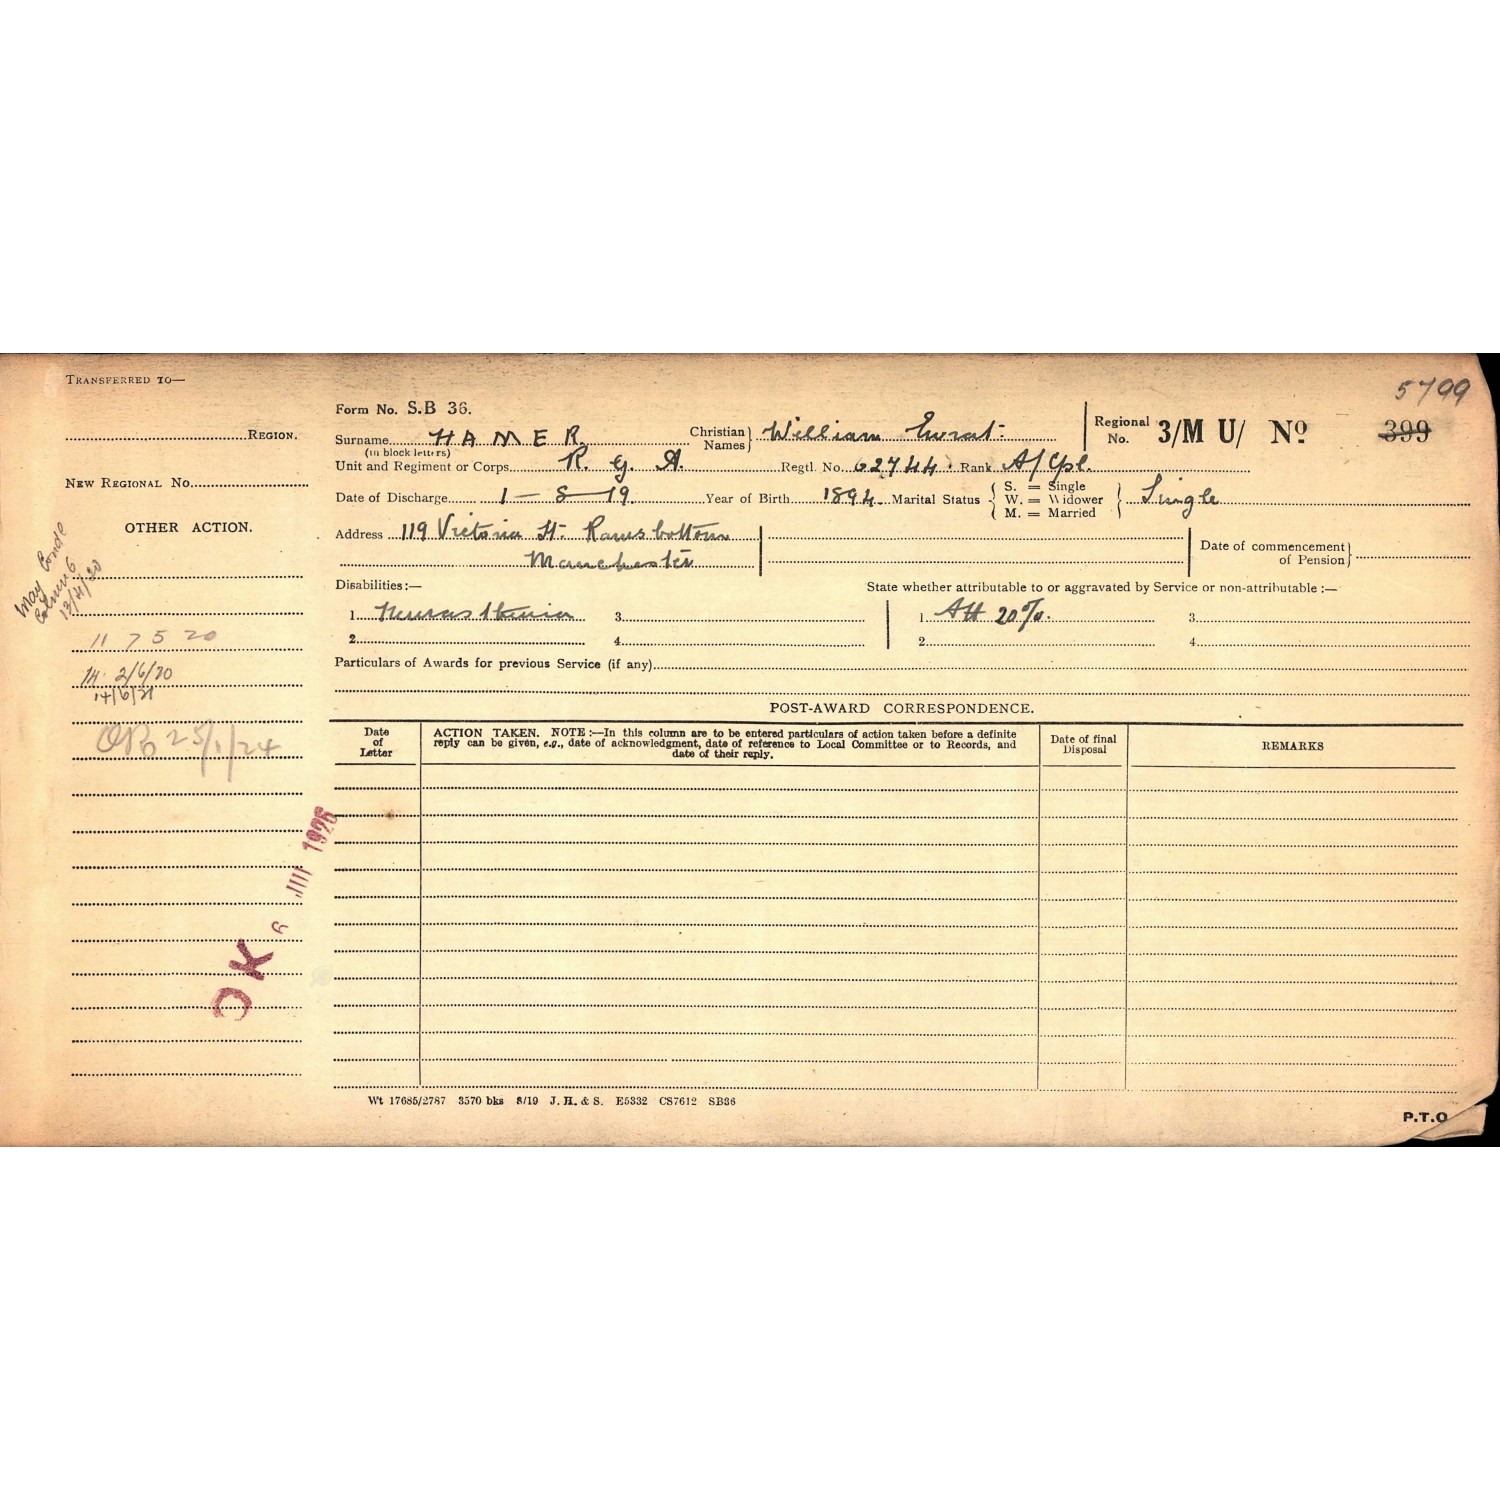 TRANSFERRED TO—
REGION.
NEW REGIONAL No.
OTHER ACTION.
May
13/4/20
11 7 5 20
14. 2/6/20
14/6/21
23/1/24
OK 9 JUL 1926
5799
Form No. S.B 36.
Surname HAMER
(in block letters)
Christian Names} William
Regional No. 3/M U/ No 399
Unit and Regiment or Corps R. G. A. Regtl. No. 62744. Rank A/Cpl.
Date of Discharge 1-8-19. Year of Birth 1894. Marital Status { S. = Single W. = Widower M. = Married } Single
Address 119 Victoria St. Ramsbottom
Manchester
Date of commencement of Pension}
Disabilities:—
State whether attributable to or aggravated by Service or non-attributable :—
1. Neurasthenia 3.
1. Att 20%. 3.
2. 4.
2. 4.
Particulars of Awards for previous Service (if any)
POST-AWARD CORRESPONDENCE.
Date of Letter
ACTION TAKEN. NOTE :—In this column are to be entered particulars of action taken before a definite
reply can be given, e.g., date of acknowledgment, date of reference to Local Committee or to Records, and
date of their reply.
Date of final Disposal
REMARKS
Wt 17685/2787 3570 bks 8/19 J. H. & S. E5332 CS7612 SB36
P.T.O